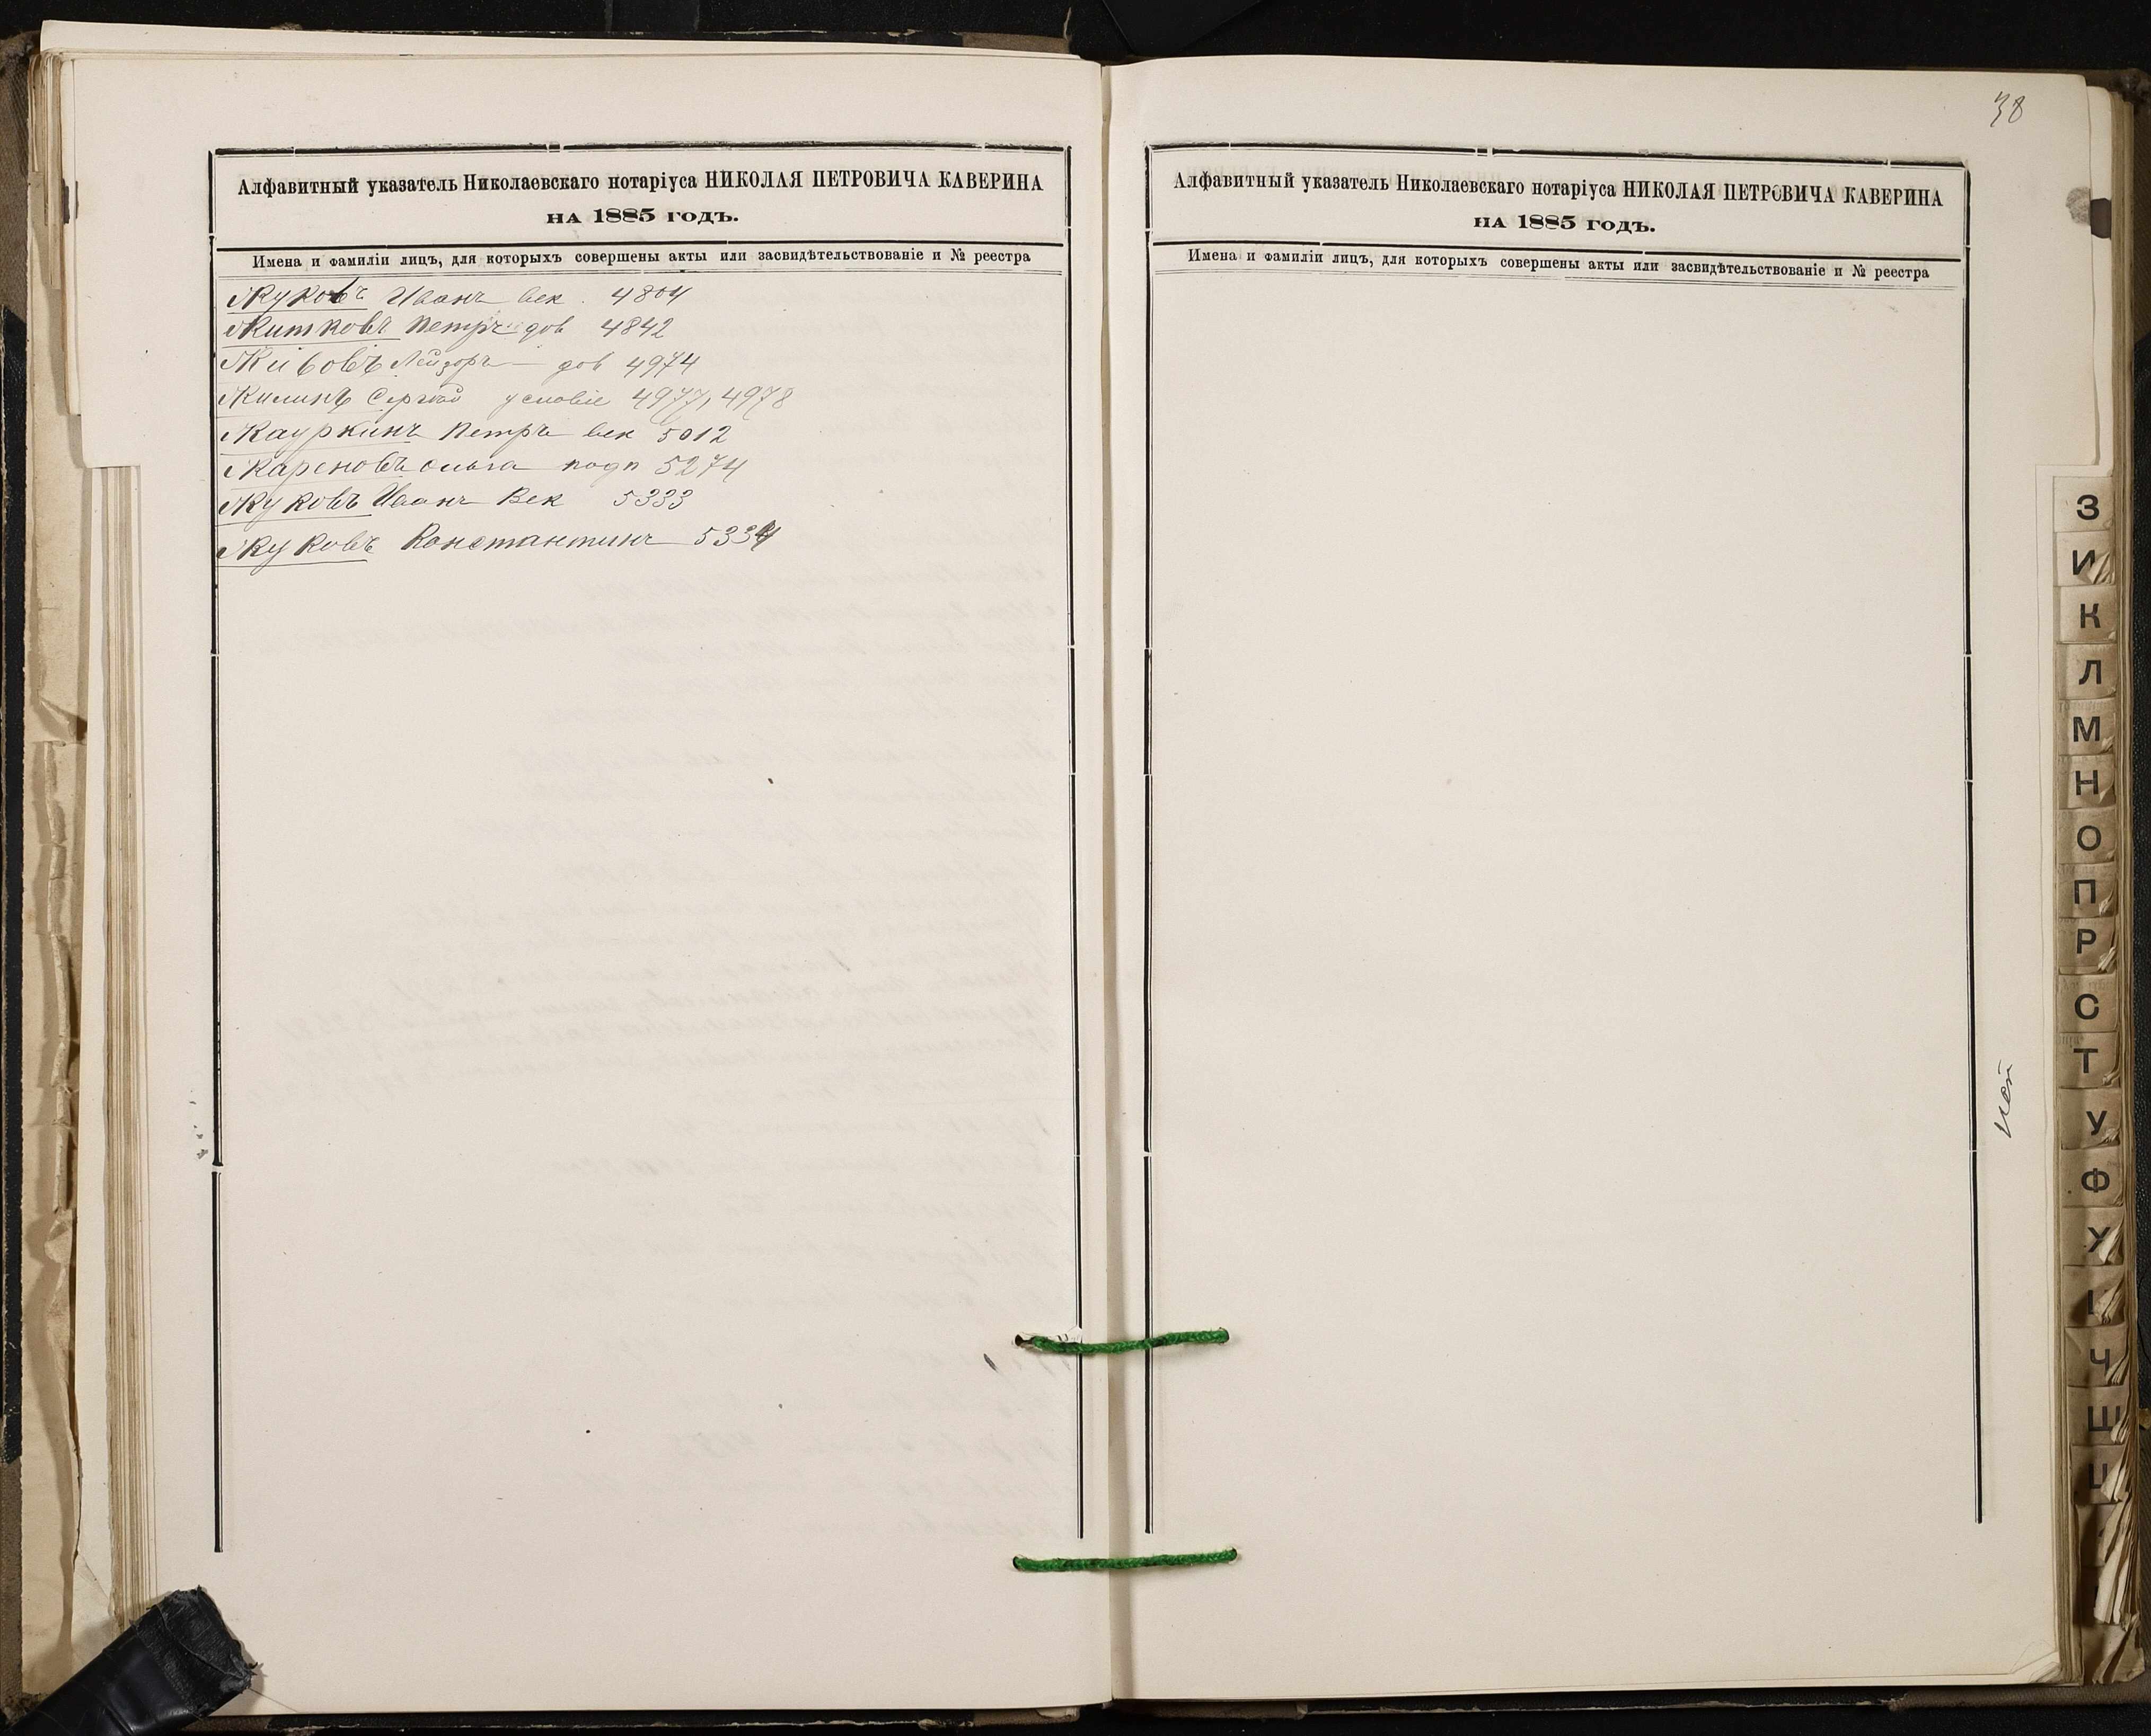 Алфавитный указатель Николаевскаго нотаріуса НИКОЛАЯ ПЕТРОВИЧА КАВЕРИНА
НА 1885 ГОДЪ.
Имена и фамиліи лицъ, для которыхъ совершены акты или засвидѣтельствованіе и № реестра
Жуковъ Иванъ век. 4804
Житковъ Петръ дов 4842
Жибовъ Лейзоръ дов 4974
Жилинъ Сергѣй условіе 4977, 4978
Жауркинъ Петръ век 5012
Жареновъ Ольга подп 5274
Жуковъ Иванъ Век 5333
Жуковъ Константинъ 5334
38
Алфавитный указатель Николаевскаго нотаріуса НИКОЛАЯ ПЕТРОВИЧА КАВЕРИНА
НА 1885 ГОДЪ.
Имена и фамиліи лицъ, для которыхъ совершены акты или засвидѣтельствованіе и № реестра
З
И
К
Л
М
Н
О
П
Р
С
Т
У
Ф
Х
Ч
Ш